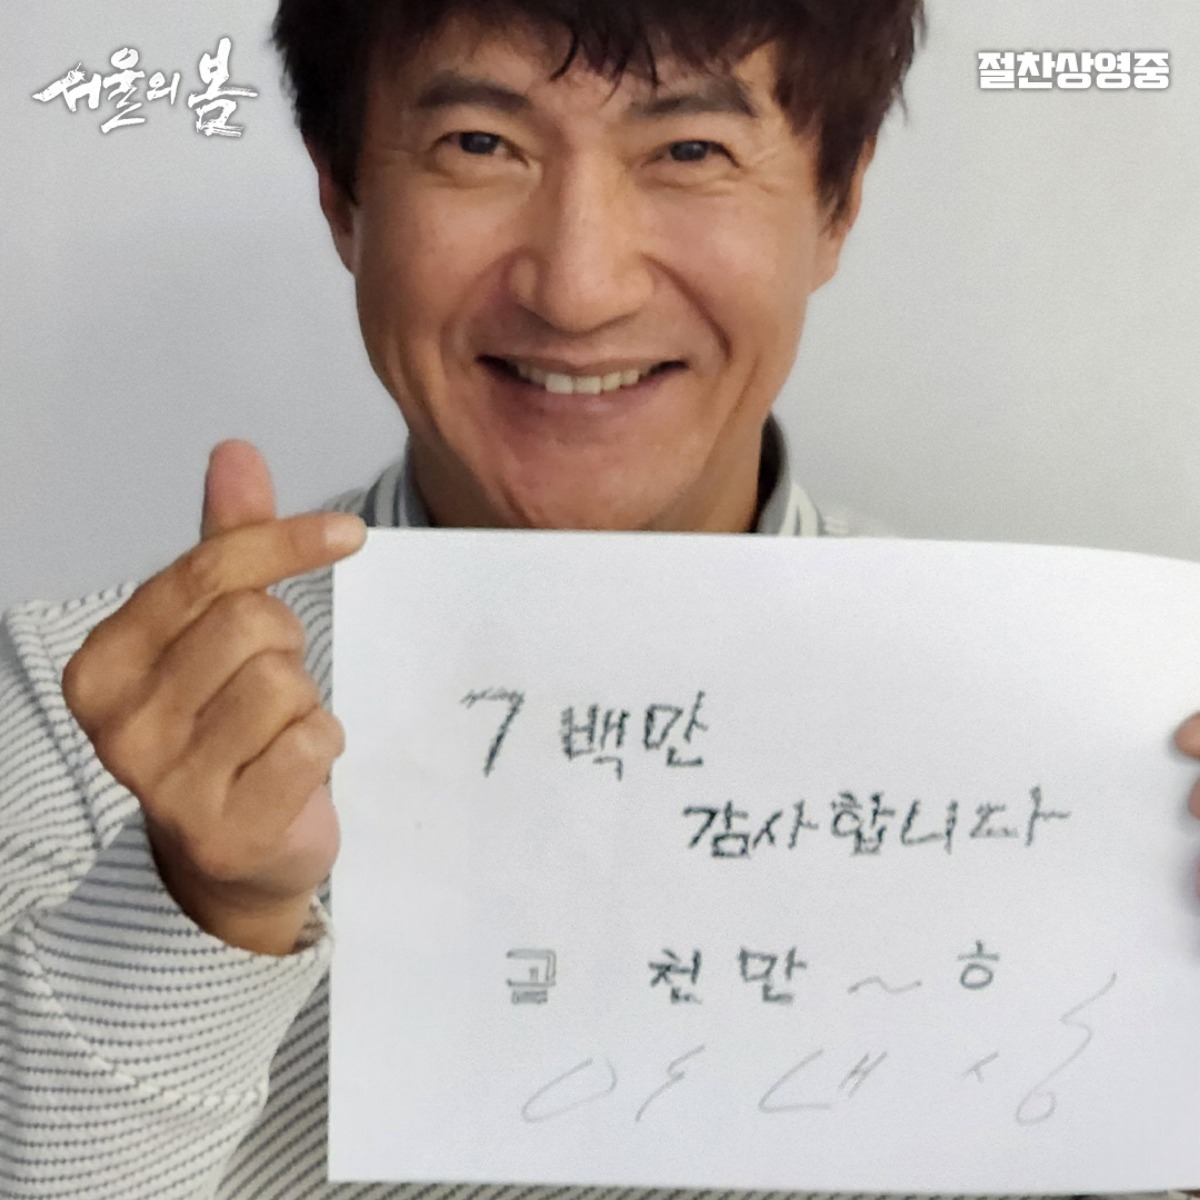 서울의 봄
절찬상영중
7 백만
감사합니다
곧 천만~ ㅎ
안내상